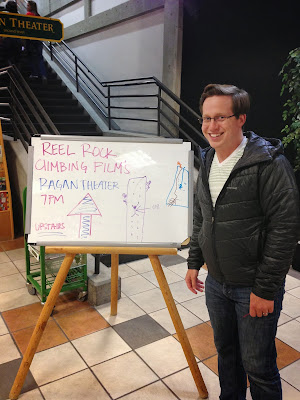 AN THEATER
REEL ROCK
CLIMBING FILMS
RAGAN THEATER
7PM
UPSTAIRS